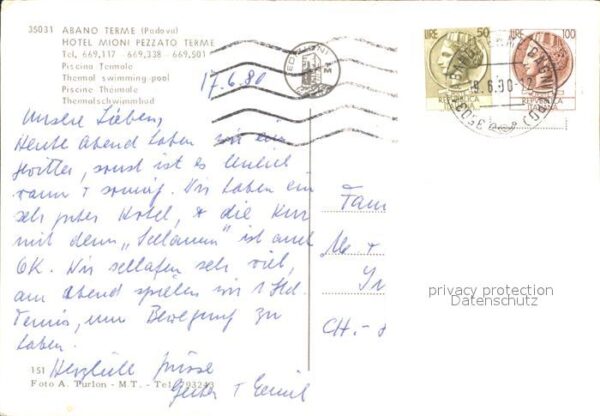 35031 ABANO TERME (Padova)
HOTEL MIONI PEZZATO TERME
Tel. 669.117 - 669.338 - 669.501
Piscina Termale
Thermal swimming-pool
Piscine Thérmale
Thermalschwimmbad
LIRE 50
LIRE 100
REPVBBLICA ITALIANA
REPVBBLICA ITALIANA
17.6.80
Unsere Lieben,
Heute Abend haben wir ein
Gewitter, sonst ist es
warm + sonnig. Wir haben ein
sehr gutes Hotel, & die Kur
mit dem "Schlamm" ist auch
OK. Wir schlafen sehr viel,
am Abend spielen wir 1 Std.
Tennis, um Bewegung zu
haben.
Herzliche Grüsse
Fam
M. +
CH.-
privacy protection
Datenschutz
151
Foto A. Turlon - M T. - Tel. 793243